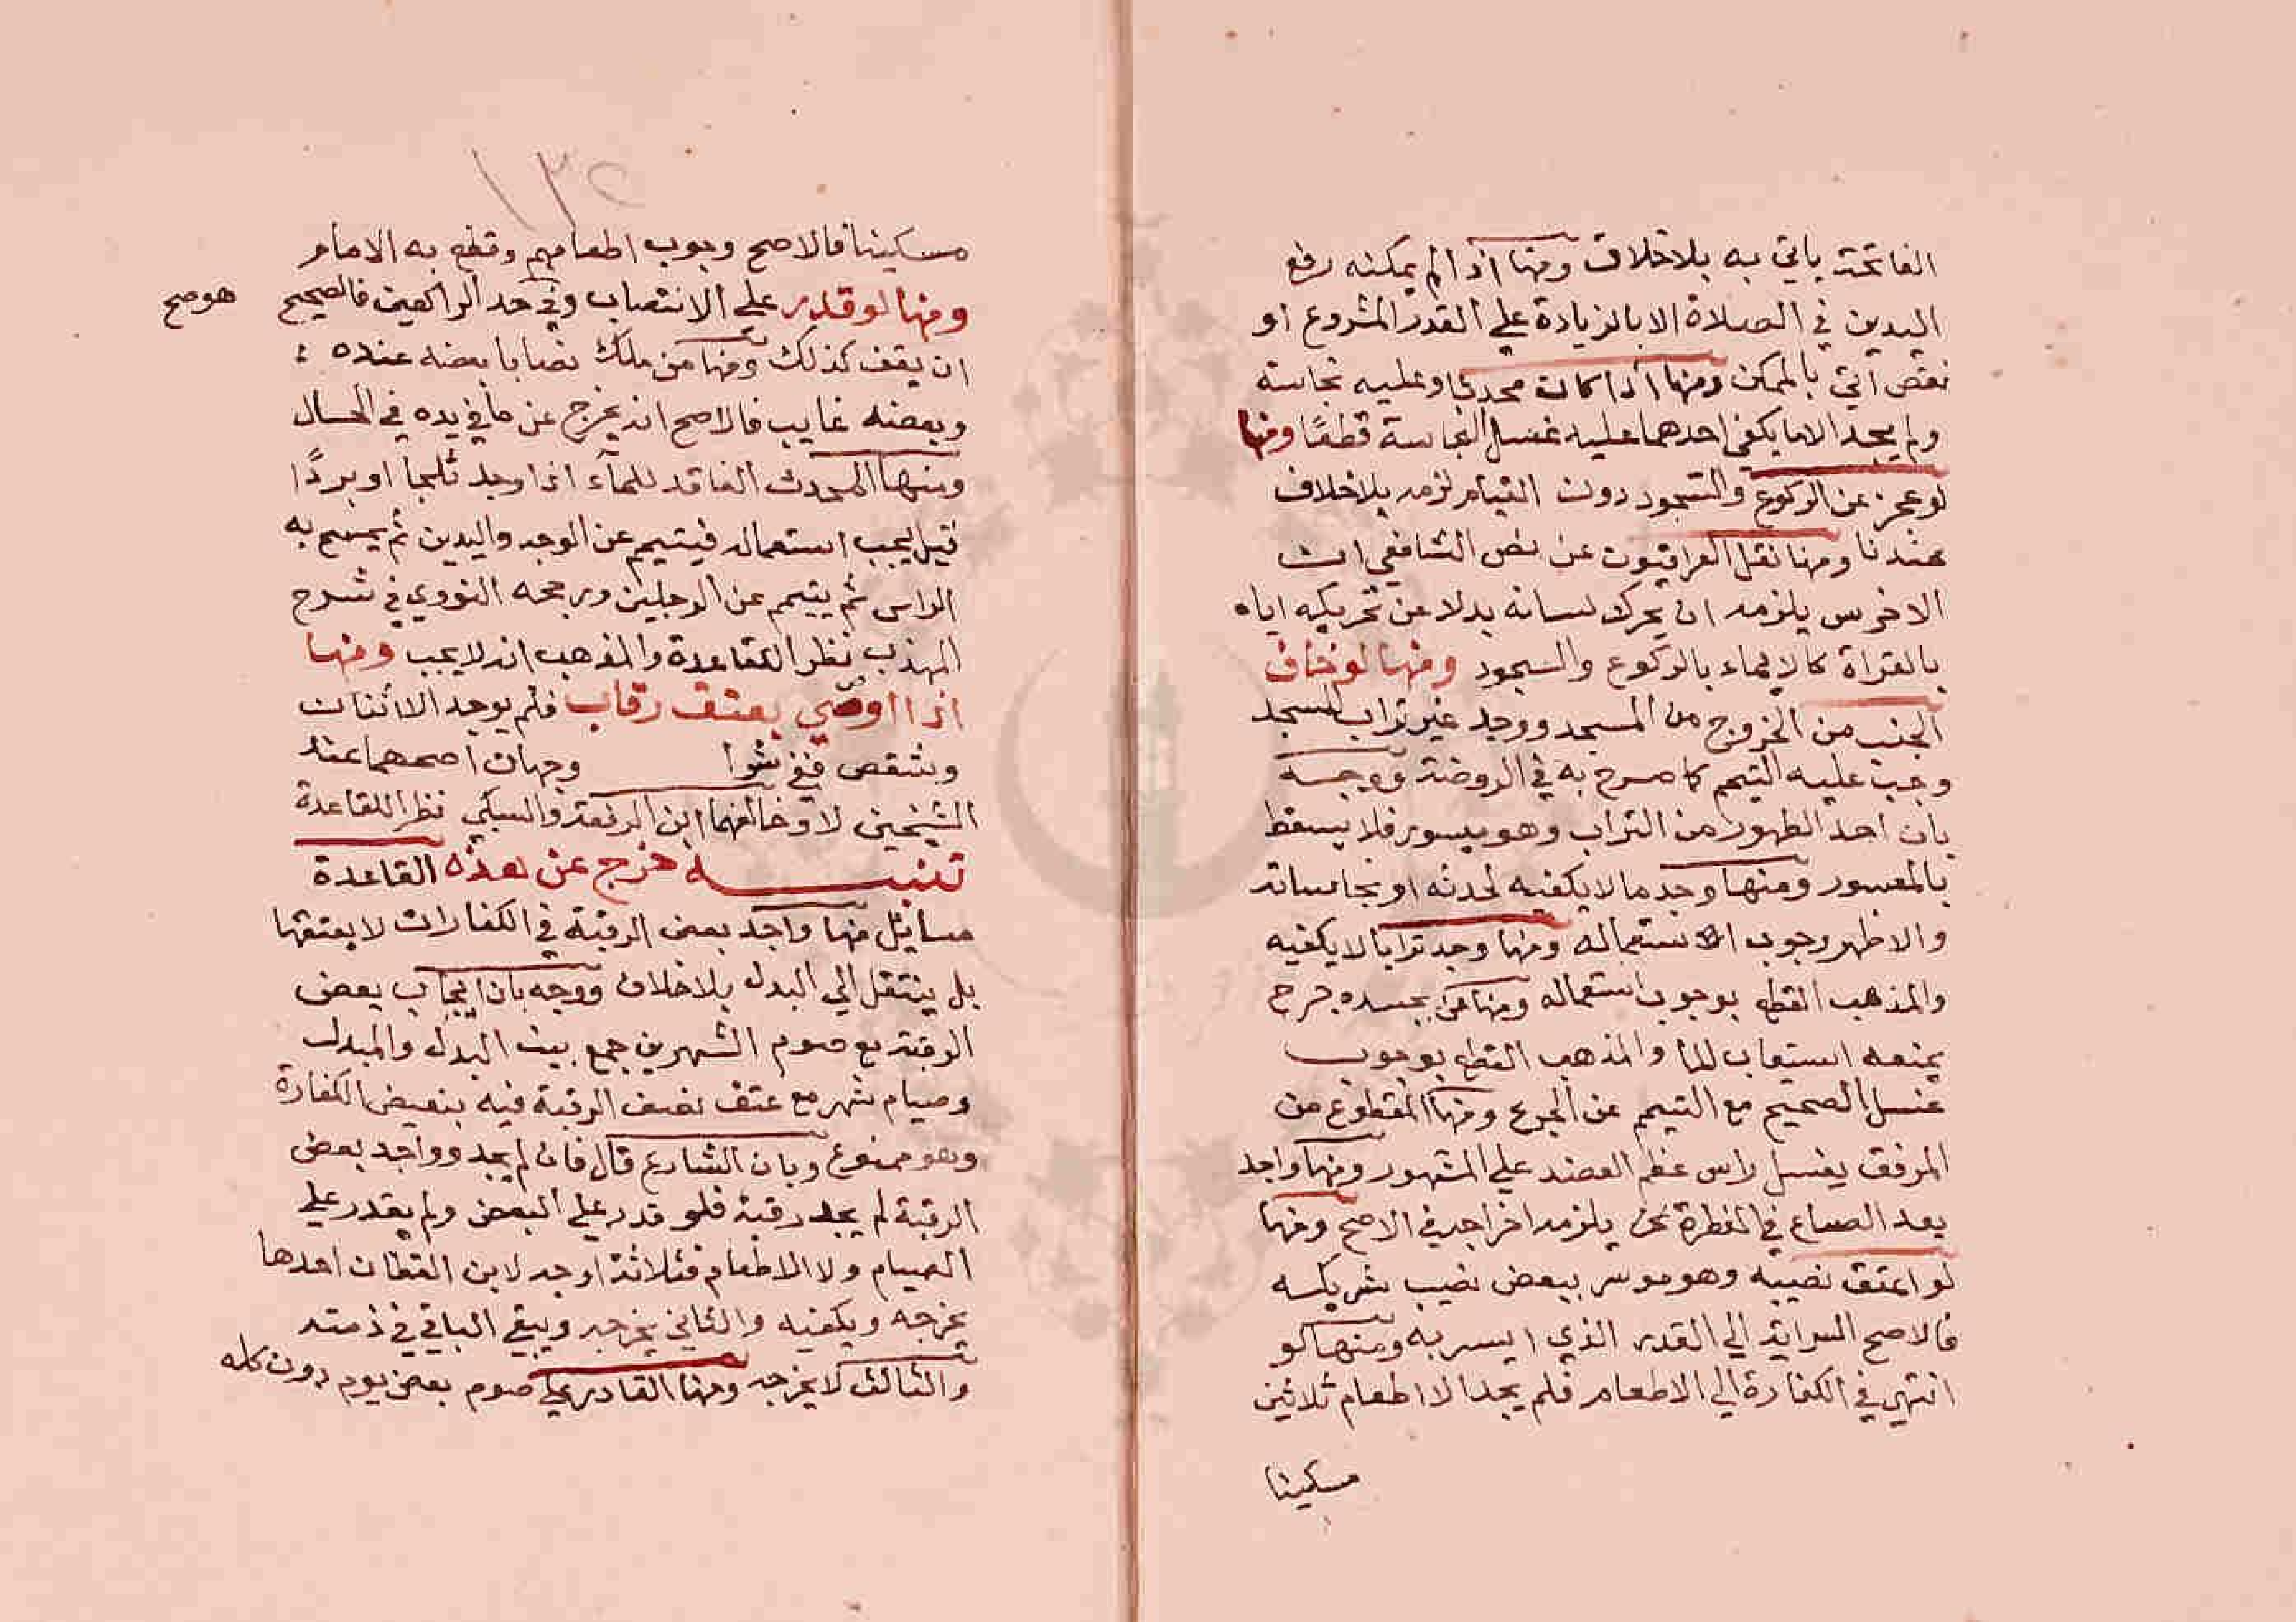 الفاتحة ياتي به بلا خلاف ومنها اذا لم يمكنه رفع
اليدين في الصلاة الا بالزيادة علي القدر المشروع او
نقص اتي بالممكن ومنها اذا كان محدثا وعليه نجاسة
ولم يجد الا ما يكفي احدهما عليه غسل النجاسة قطعًا ومنها
لو عجز عن الركوع والسجود دون القيام لزمه بلا خلاف
عندنا ومنها نقل العراقيون عن نص الشافعي ان
الاخرس يلزمه ان يحرك لسانه بدلا عن تحريكه اياه
بالقراة كالايماء بالركوع والسجود ومنها لو خاف
الجنب من الخروج من المسجد ووجد غير تراب المسجد
وجب عليه التيمم كما صرح به في الروضة ووجه
بان احد الطهورين التراب وهو ميسور فلا يسقط
بالمعسور ومنها وجد ما لا يكفيه لحدثه او نجاساته
والاظهر وجوب استعماله ومنها وجد ترابا لا يكفيه
والمذهب القطع بوجوب استعماله ومنها من بجسده جرح
يمنعه استيعاب الما والمذهب القطع بوجوب
غسل الصحيح مع التيمم عن الجرح ومنها المقطوع من
المرفق يغسل راس عظم العضد علي المشهور ومنها واجد
بعد الصاع في الفطرة عن يلزمه اخراجه في الاصح ومنها
لو اعتق نصيبه وهو موسر ببعض نصيب شريكه
فالاصح السراية الي القدر الذي ايسر به ومنها لو
انتهي في الكفارة الي الاطعام فلم يجد الا اطعام ثلاثين
مسكينا
مسكينا فالاصح وجوب اطعامهم وقطع به الامام
ومنها لو قدر علي الانتصاب وفي حد الراكعين فالصحيح
هو صح
ان يقف كذلك ومنها من ملك نصابا بعضه عنده :
وبعضه غايب فالاصح انه يخرج عن ما في يده في الحال
ومنها المحدث الفاقد للماء اذا وجد ثلجا او بردًا
قيل يجب استعماله فيتيمم عن الوجه واليدين ثم يمسح به
الراس ثم يتيمم عن الرجلين ورجحه النووي في شرح
المهذب نظرا للقاعدة والمذهب انه لا يجب ومنها
اذا اوصي بعتق رقاب فلم يوجد الا اثنان
وشقص ففي شرا وجهان اصحهما عند
الشيخين لا وخالفهما ابن الرفعة والسبكي نظرا للقاعدة
تنبيه خرج عن هذه القاعدة
مسايل منها واجد بعض الرقبة في الكفارات لا يعتقها
بل ينتقل الي البدل بلا خلاف ووجه بان ايجاب بعض
الرقبة مع صوم الشهرين جمع بين البدل والمبدل
وصيام شهر مع عتق نصف الرقبة فيه بتعيض الكفارة
وهو ممنوع وبان الشارع قال فان لم يجد وواجد بعض
الرقبة لم يجد رقبة فلو قدر علي البعض ولم يقدر علي
الصيام ولا الاطعام فثلاثة اوجه لابن القطان احدها
يخرجه ويكفيه والثاني يخرجه ويبقي الباقي في ذمته
والثالث لا يخرجه ومنها القادر علي صوم بعض يوم دون كله